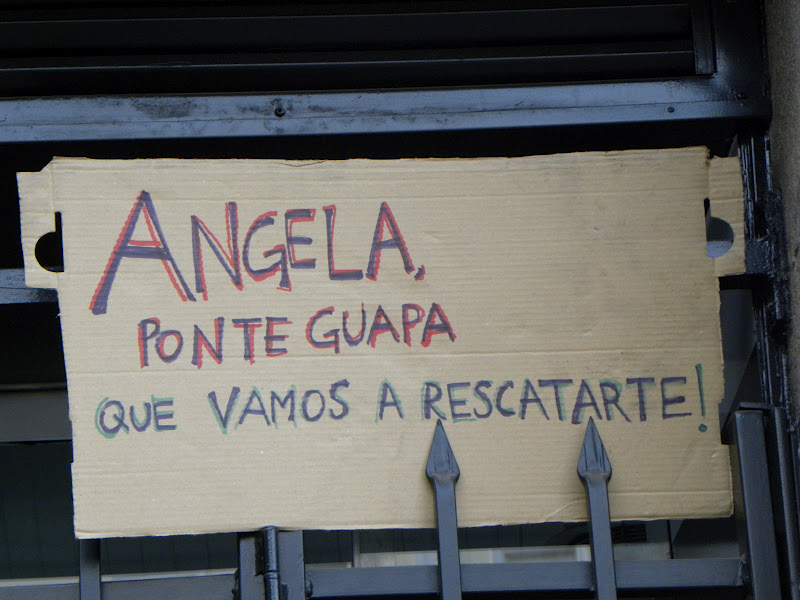 ANGELA,
PONTE GUAPA
QUE VAMOS A RESCATARTE!